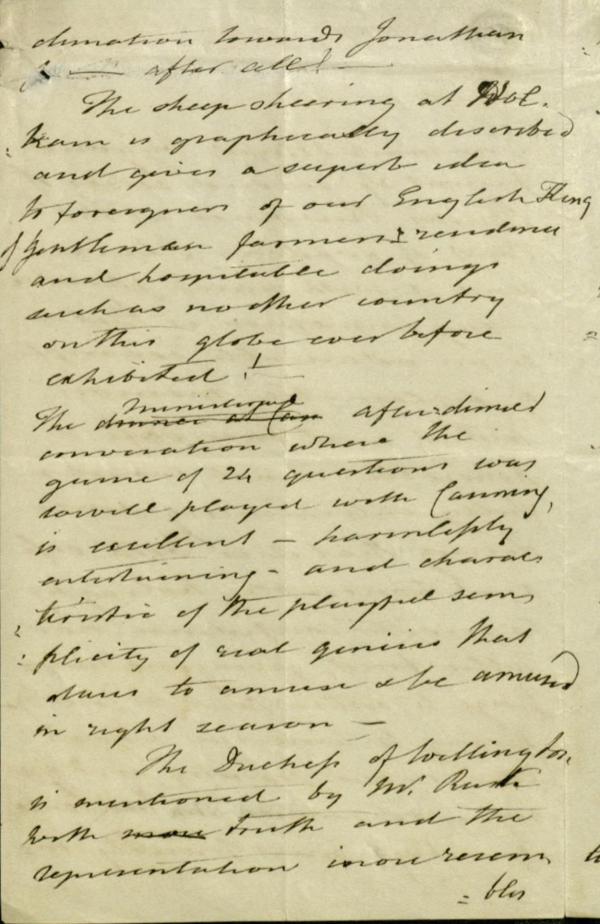 donation towards Jonathan
— after all! —
The sheep shearing at Hol:
:kam is graphically described
and gives a superb idea
to foreigners of our English King
of gentleman farmers: residence
and hospitable doings
such as no other country
on this globe ever before
exhibited! —
The dinner at Can ministerial after-dinner
conversation where the
game of 24 questions was
so well played with Canning,
is excellent — harmlessly
entertaining — and charac
:teristic of the playful sim
:plicity of real genius that
dares to amuse & be amused
in right season —
The Duchess of Wellington
is mentioned by Mr. Rush
with more truth and the
representation more resem
= bles